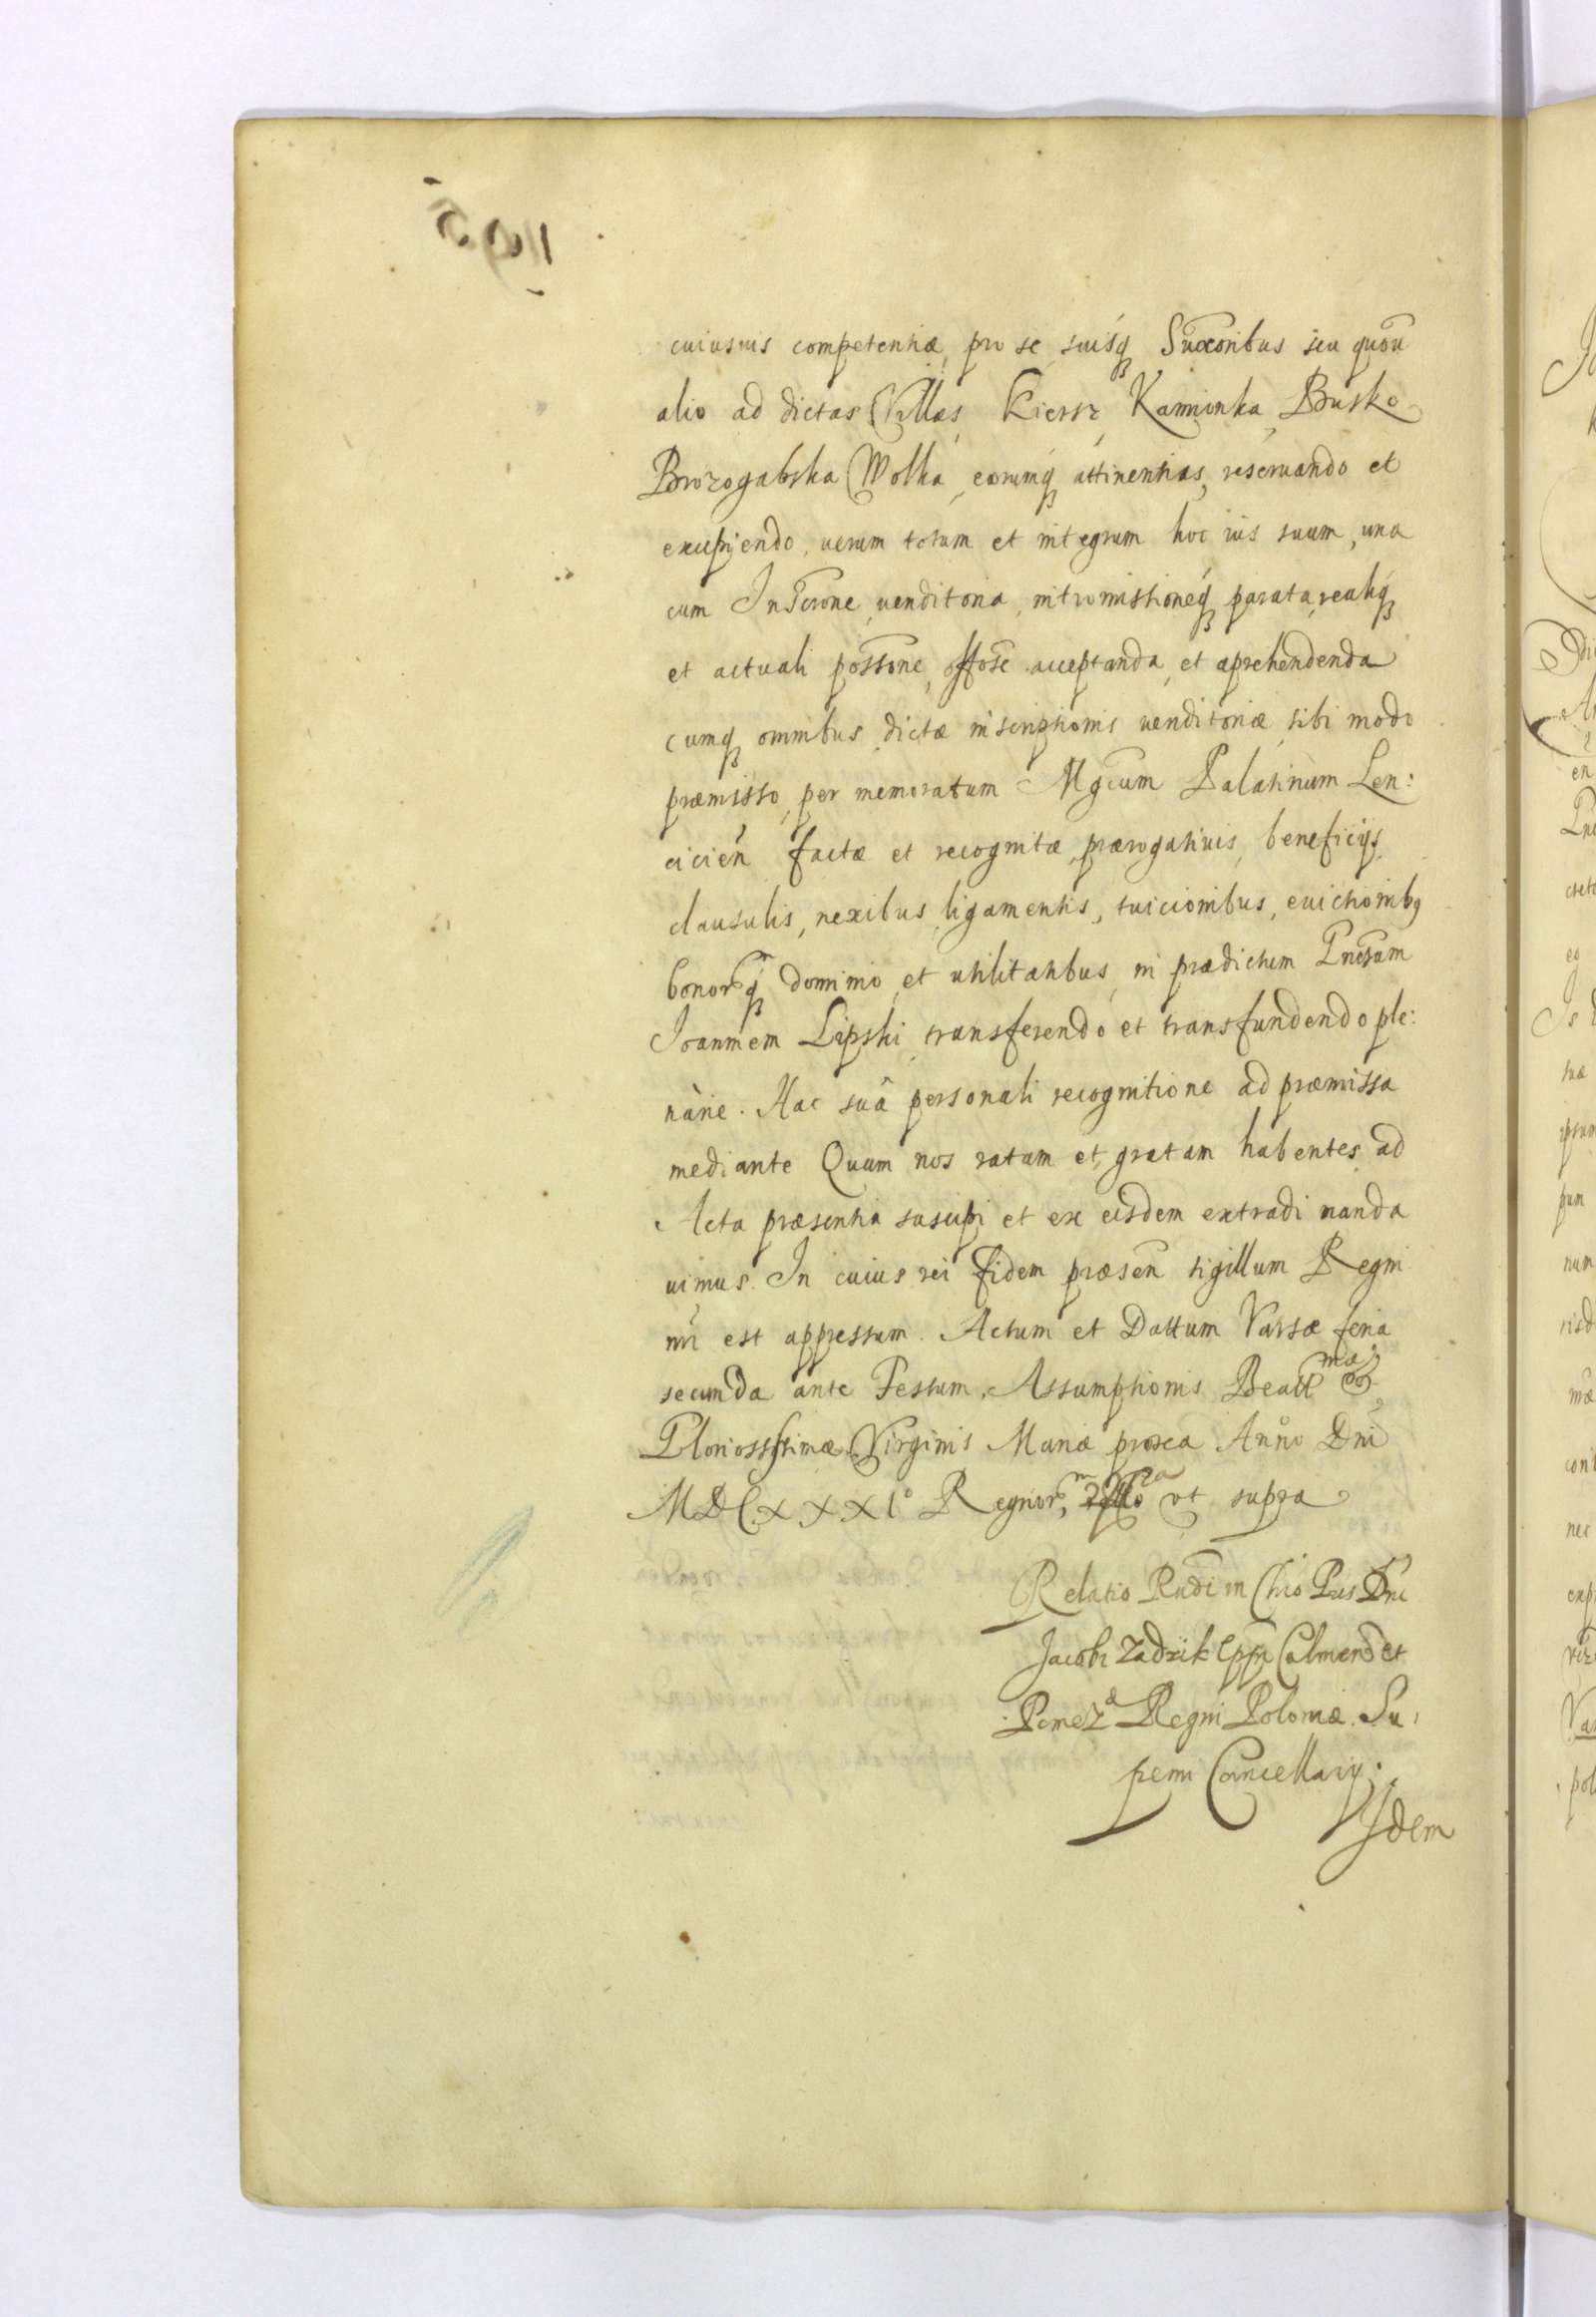 cuiusuis competentiæ, pro se suisq Suxoribus seu quou
alio ad dictas Villas Kiersz, Kamionka, Busko
Brozogabska Wolka, eorumq attinentias, reseruando et
excipiendo, uerum totum et integrum hoc ius suum, una
cum Inscrone, uenditoria, intromissioneq parata, realiq
et actuali possone, acceptanda, et aprehendenda
cumq omnibus dictæ inscriptionis uenditoriæ sibi modo
præmisso, per memoratum Mgcum Palatinum Len:
cicien factæ et recognitæ, prærogatiuis, beneficijs,
clausulis, nexibus, ligamentis, tuicionibus, euictionibq
bonorq dominio, et utilitatibus, in prædictum Gnosum
Joannem Lipski transferendo et transfundendo ple:
nàrie. Hac suâ personali recognitione ad præmissa
mediante Quam nos ratam et gratam habentes ad
Acta præsentia suscipi et ex eisdem extradi manda
uimus. In cuius rei fidem præsen sigillum Regni
nri est appressum. Actum et Dattum Varsæ feria
secunda ante Festum Assumptionis Beattmæ et
Gloriosissimæ Virginis Mariæ proxa Anno Dni
MDCXXXIº Regnorm ut supra
Relatio Rndi in Chro Pris Dni
Jacobi Zadzik Eppi Culmen et
Pomez Regni Poloniæ Su:
premi Cancellarij.
Idem